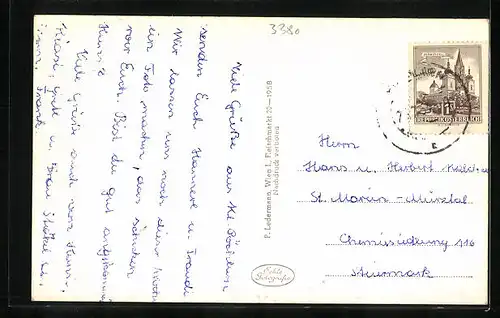 3380
Viele Grüße aus Kl. Pöchlarn
senden Euch Hannerl u. Traudi
Wir lassen uns noch diese Woche
ein Foto machen, das schicken
wir Euch. Bist du gut angekommen
Hansi?
Viele Grüße auch von Hansi,
Gretl u. Frau
Frank.
P. Ledermann, Wien I, Fleischmarkt 20—1958
Nachdruck verboten
Echte
Fotografie
REPUBLIK ÖSTERREICH
Herrn
Hans u. Herbert
St. Marein - Mürztal
Chemiesiedlung 116
Steiermark